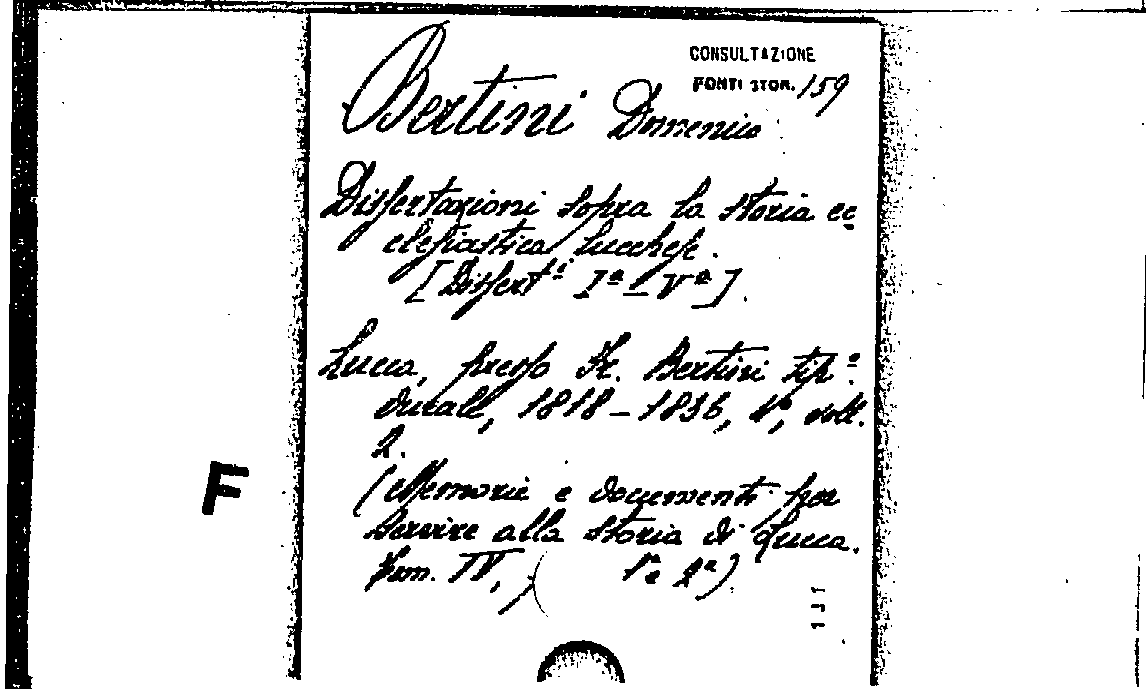 CONSULTAZIONE
FONTI STOR. 159
Bertini Domenico
Dissertazioni sopra la storia ec
clesiastica lucchese.
[Dissert.i Iª - Vª].
Lucca, presso Fr. Bertini tip.º
ducale, 1818-1836, 4º, voll.
2.
(Memorie e documenti per
servire alla storia di Lucca.
Tom. IV, 1ª e 2ª)
F